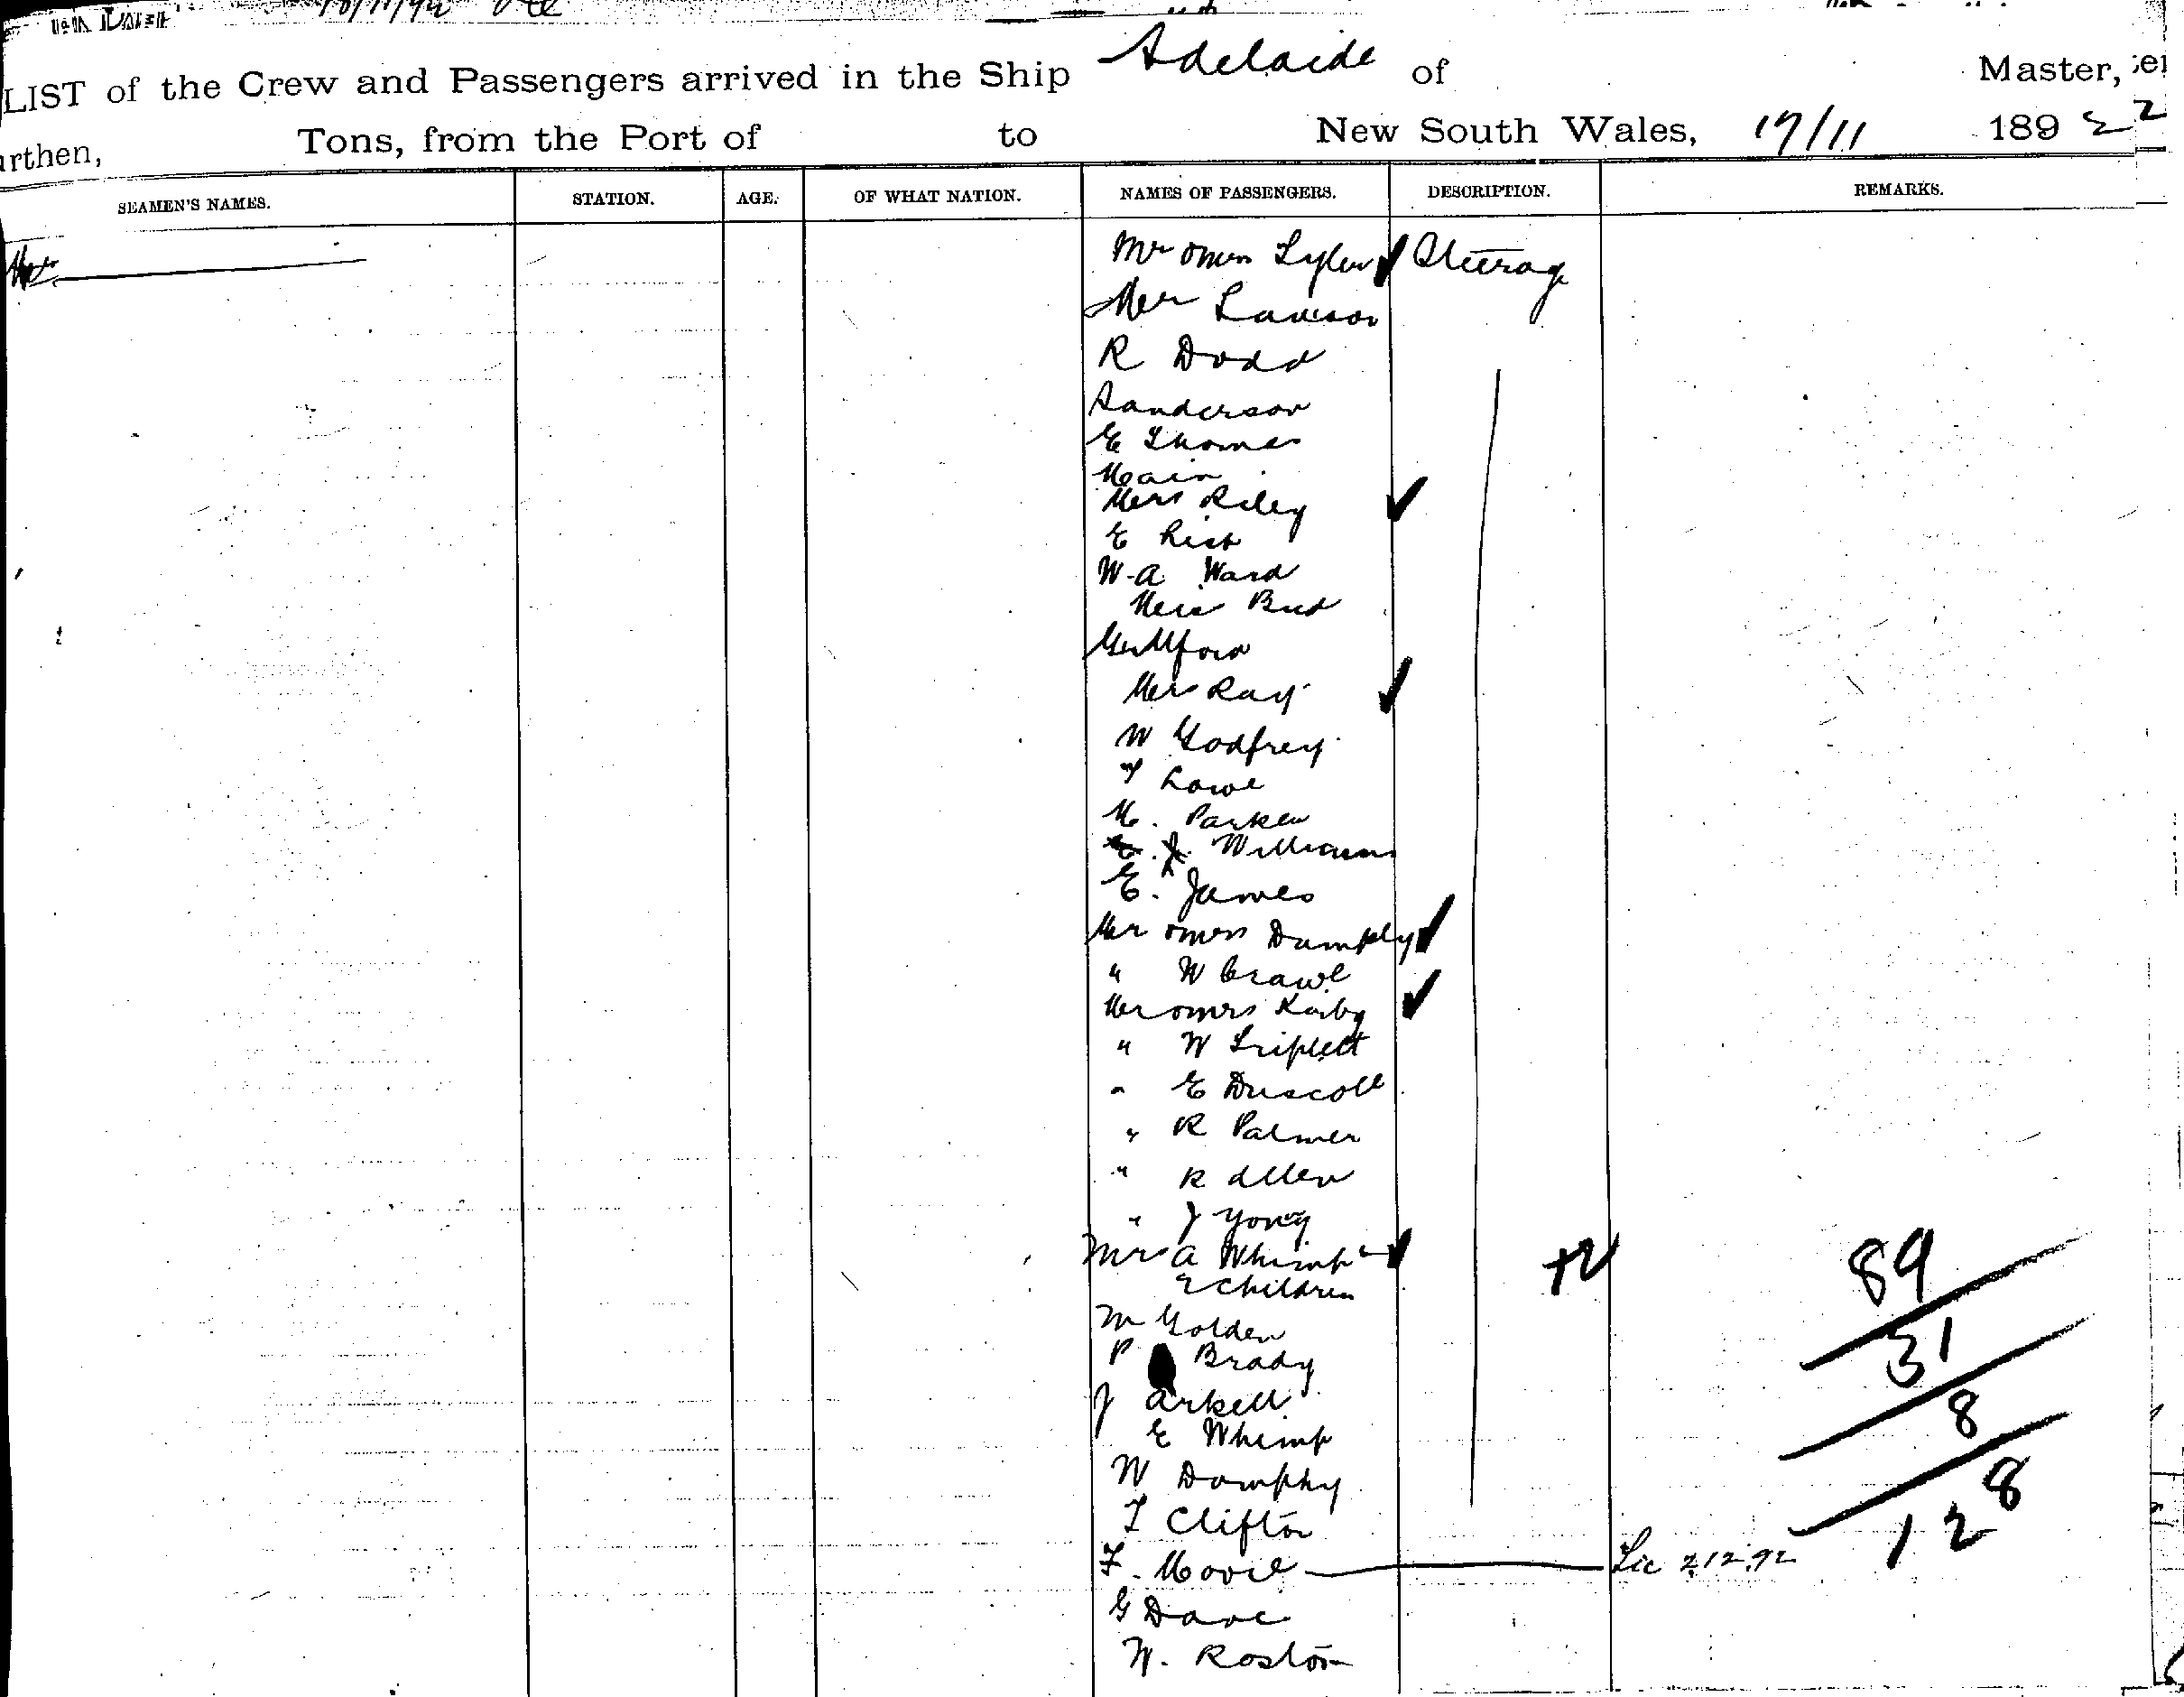 LIST of the Crew and Passengers arrived in the Ship Adelaide of Master,
rthen, Tons, from the Port of to New South Wales, 17/11 1892
SEAMEN'S NAMES. STATION. AGE. OF WHAT NATION. NAMES OF PASSENGERS. DESCRIPTION. REMARKS.
Mr & Mrs Tyler Steerage
Mr Lawson
R Dodd
Sanderson
E Thomas
Main
Mrs Riley
E Rich
W. A. Ward
Miss Bird
Guilford
Mrs Ray
W Godfrey
T Lowe
M. Parker
J. Williams
E. James
Mr & Mrs Dumphy
" W Crawl
Mr & Mrs Kirby
" W Triplett
" E Driscoll
" R Palmer
" R Allen
" J Young
Mrs A Whimp
2 Children
89
M Golden
31
P Brady
J Arkell
8
E Whimp
W Dumphy
128
T Clifton
F. Moore Lic 2.12.92
G Dave
W. Roston